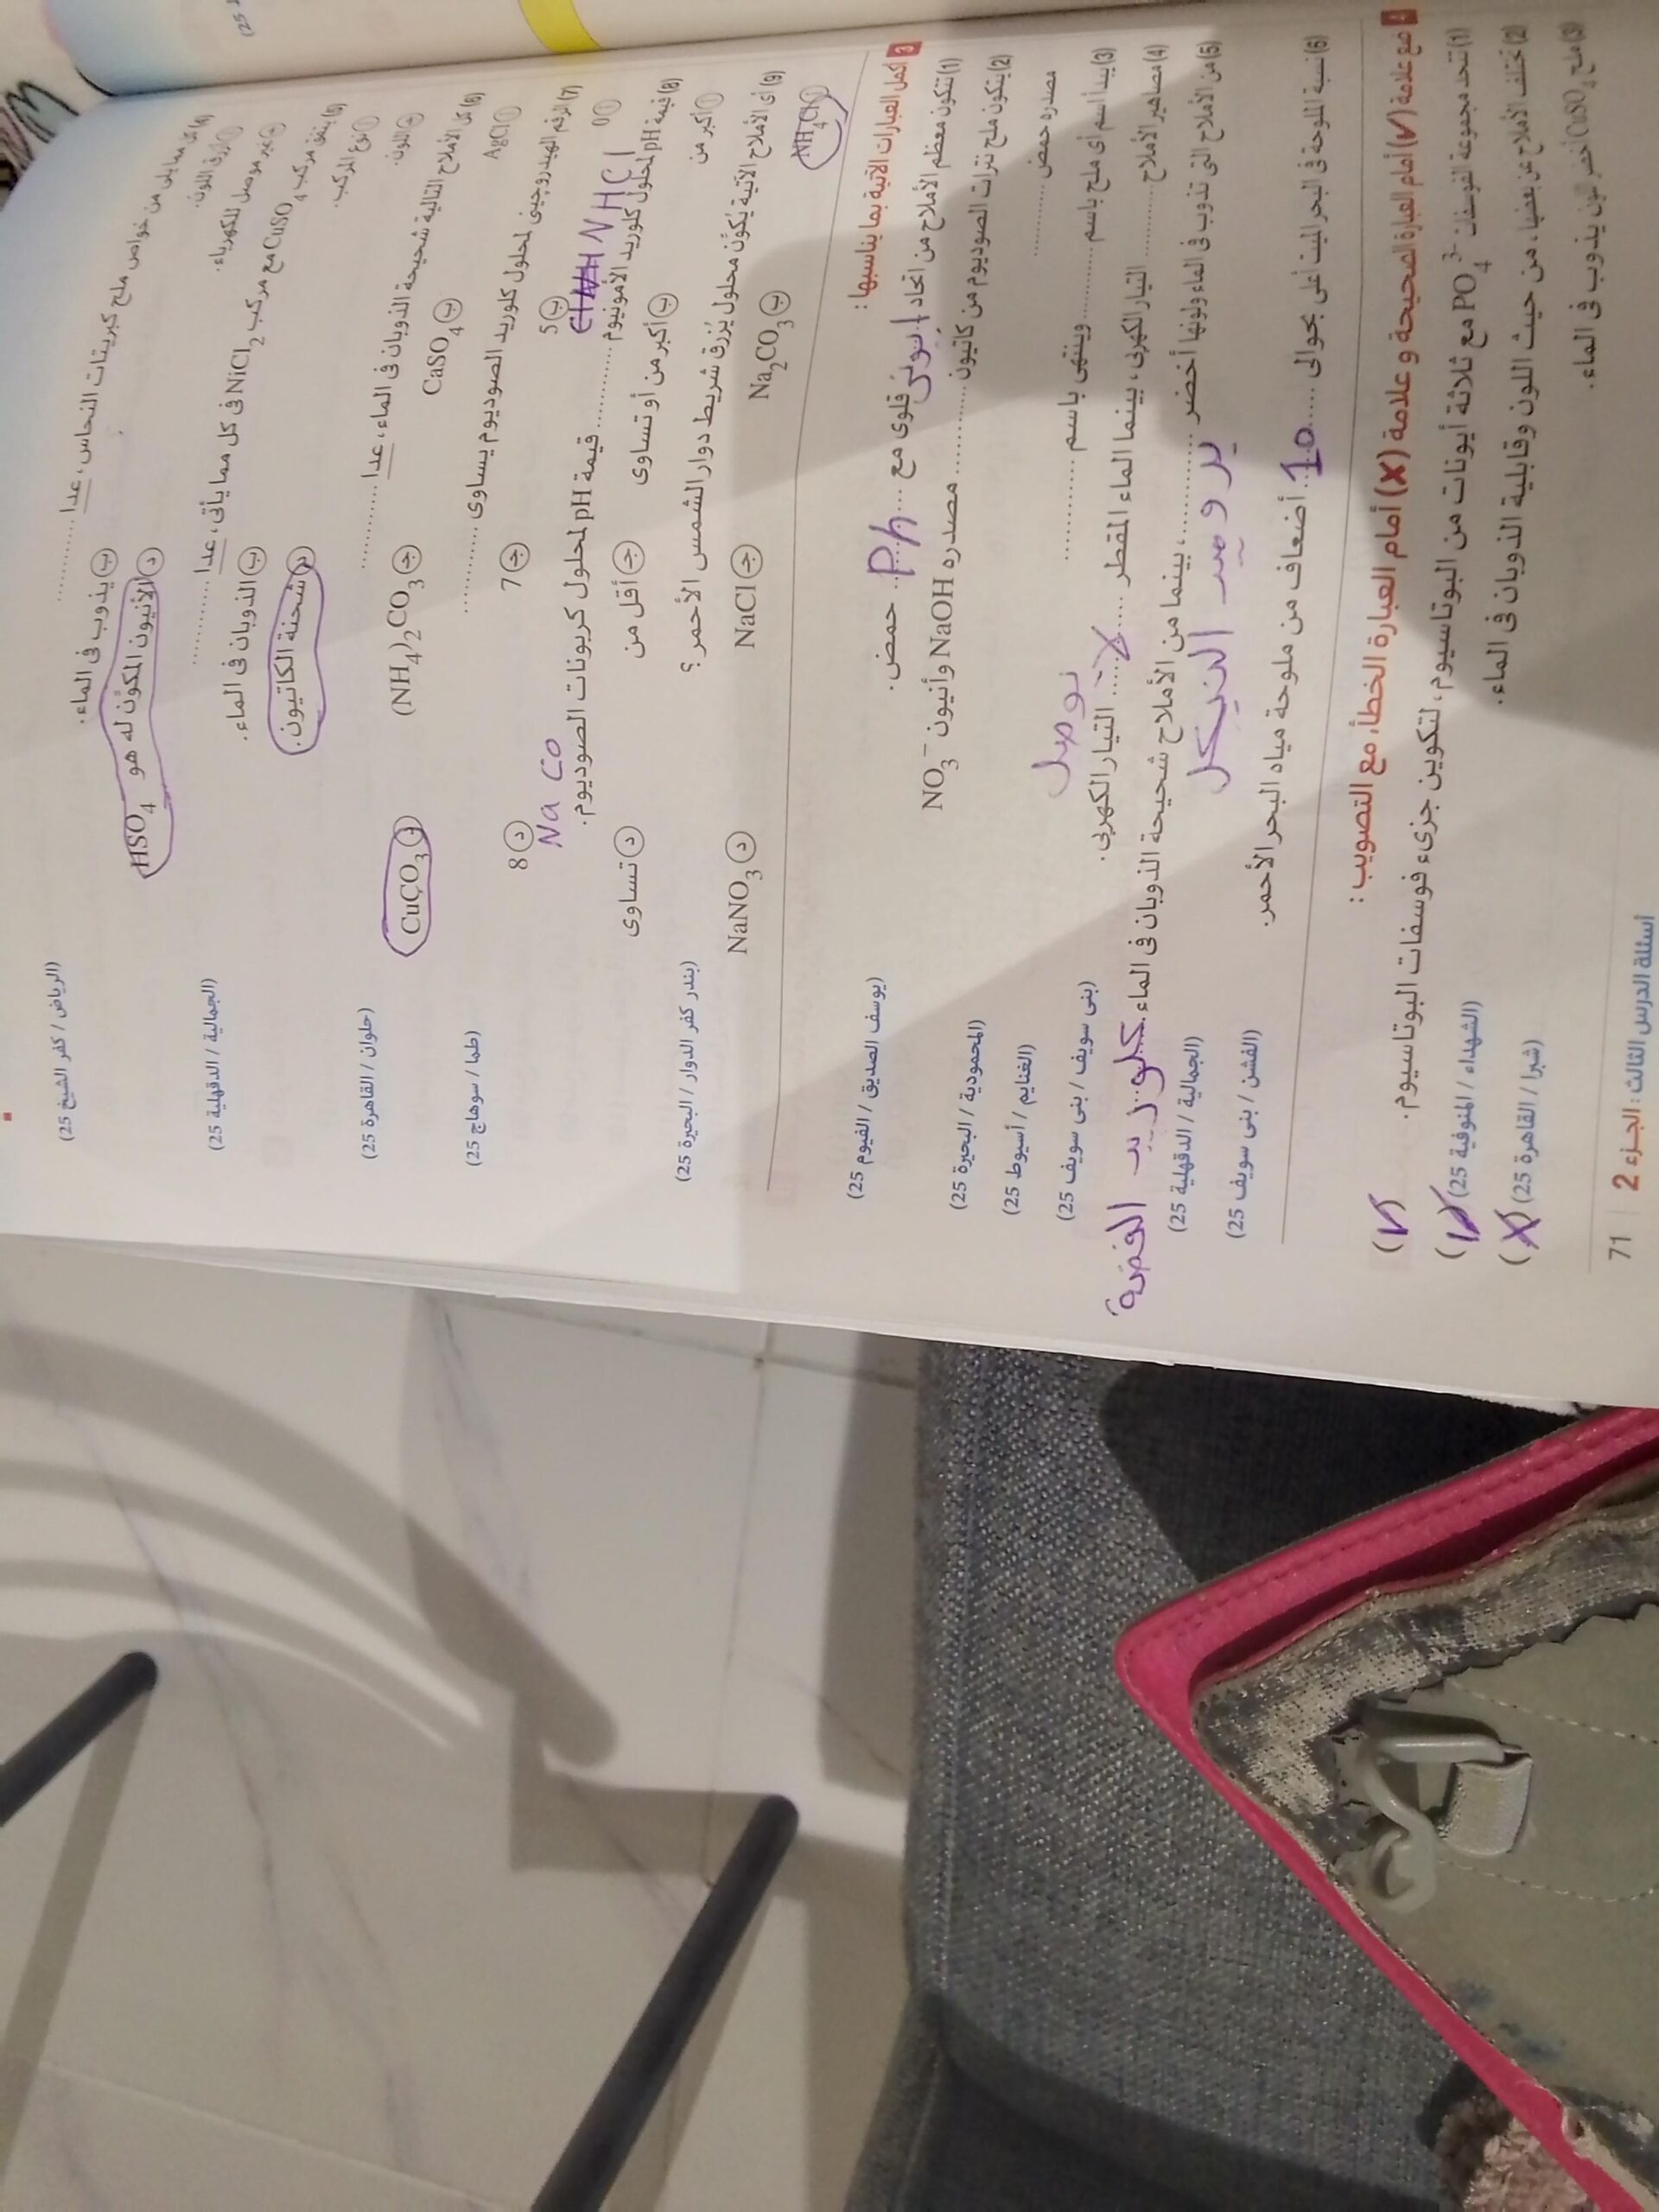 (4) كل مما يلى من خواص ملح كبريتات النحاس، عدا ............ (الرياض / كفر الشيخ 25)
أ أزرق اللون.
ب يذوب فى الماء.
ج غير موصل للكهرباء.
د الأنيون المكوّن له هو HSO4
(5) يتفق مركب CuSO4 مع مركب NiCl2 فى كل مما يأتى، عدا ............ (الجمالية / الدقهلية 25)
أ نوع المركب.
ب الذوبان فى الماء.
ج اللون.
د شحنة الكاتيون.
(6) كل الأملاح التالية شحيحة الذوبان فى الماء، عدا ............ (حلوان / القاهرة 25)
أ AgCl
ب CaSO4
ج (NH4)2CO3
د CuCO3
(7) الرقم الهيدروجينى لمحلول كلوريد الصوديوم يساوى ............ (طما / سوهاج 25)
أ 0
ب 5
ج 7
د 8
NHCl
Na Co
(8) قيمة pH لمحلول كلوريد الأمونيوم ............ قيمة pH لمحلول كربونات الصوديوم.
أ أكبر من
ب أكبر من أو تساوى
ج أقل من
د تساوى
(9) أى الأملاح الآتية يُكوِّن محلول يُزرق شريط دوار الشمس الأحمر ؟ (بندر كفر الدوار / البحيرة 25)
أ NH4Cl
ب Na2CO3
ج NaCl
د NaNO3
3 أكمل العبارات الآتية بما يناسبها :
(1) تتكون معظم الأملاح من اتحاد أيونى قلوى مع Ph حمض. (يوسف الصديق / الفيوم 25)
(2) يتكون ملح نترات الصوديوم من كاتيون ............ مصدره NaOH وأنيون NO3−
مصدره حمض ............ (المحمودية / البحيرة 25)
(3) يبدأ اسم أى ملح باسم ............ وينتهى باسم ............ (الغنايم / أسيوط 25)
توصل
(4) مصاهير الأملاح ............ التيار الكهربى، بينما الماء المقطر لا التيار الكهربى. (بنى سويف / بنى سويف 25)
(5) من الأملاح التى تذوب فى الماء ولونها أخضر ............ ، بينما من الأملاح شحيحة الذوبان فى الماء كلوريد الفضة (الجمالية / الدقهلية 25)
بروميد النيكل
(6) نسبة الملوحة فى البحر الميت أعلى بحوالى 10 أضعاف من ملوحة مياه البحر الأحمر. (الفشن / بنى سويف 25)
4 ضع علامة (✓) أمام العبارة الصحيحة و علامة (✗) أمام العبارة الخطأ، مع التصويب :
(1) تتحد مجموعة الفوسفات PO4 3− مع ثلاثة أيونات من البوتاسيوم، لتكوين جزىء فوسفات البوتاسيوم. (✓)
(2) تختلف الأملاح عن بعضها، من حيث اللون وقابلية الذوبان فى الماء. (الشهداء / المنوفية 25) (✓)
(3) ملح CuSO4 أخضر اللون يذوب فى الماء. (شبرا / القاهرة 25) (✗)
71 | أسئلة الدرس الثالث : الجزء 2